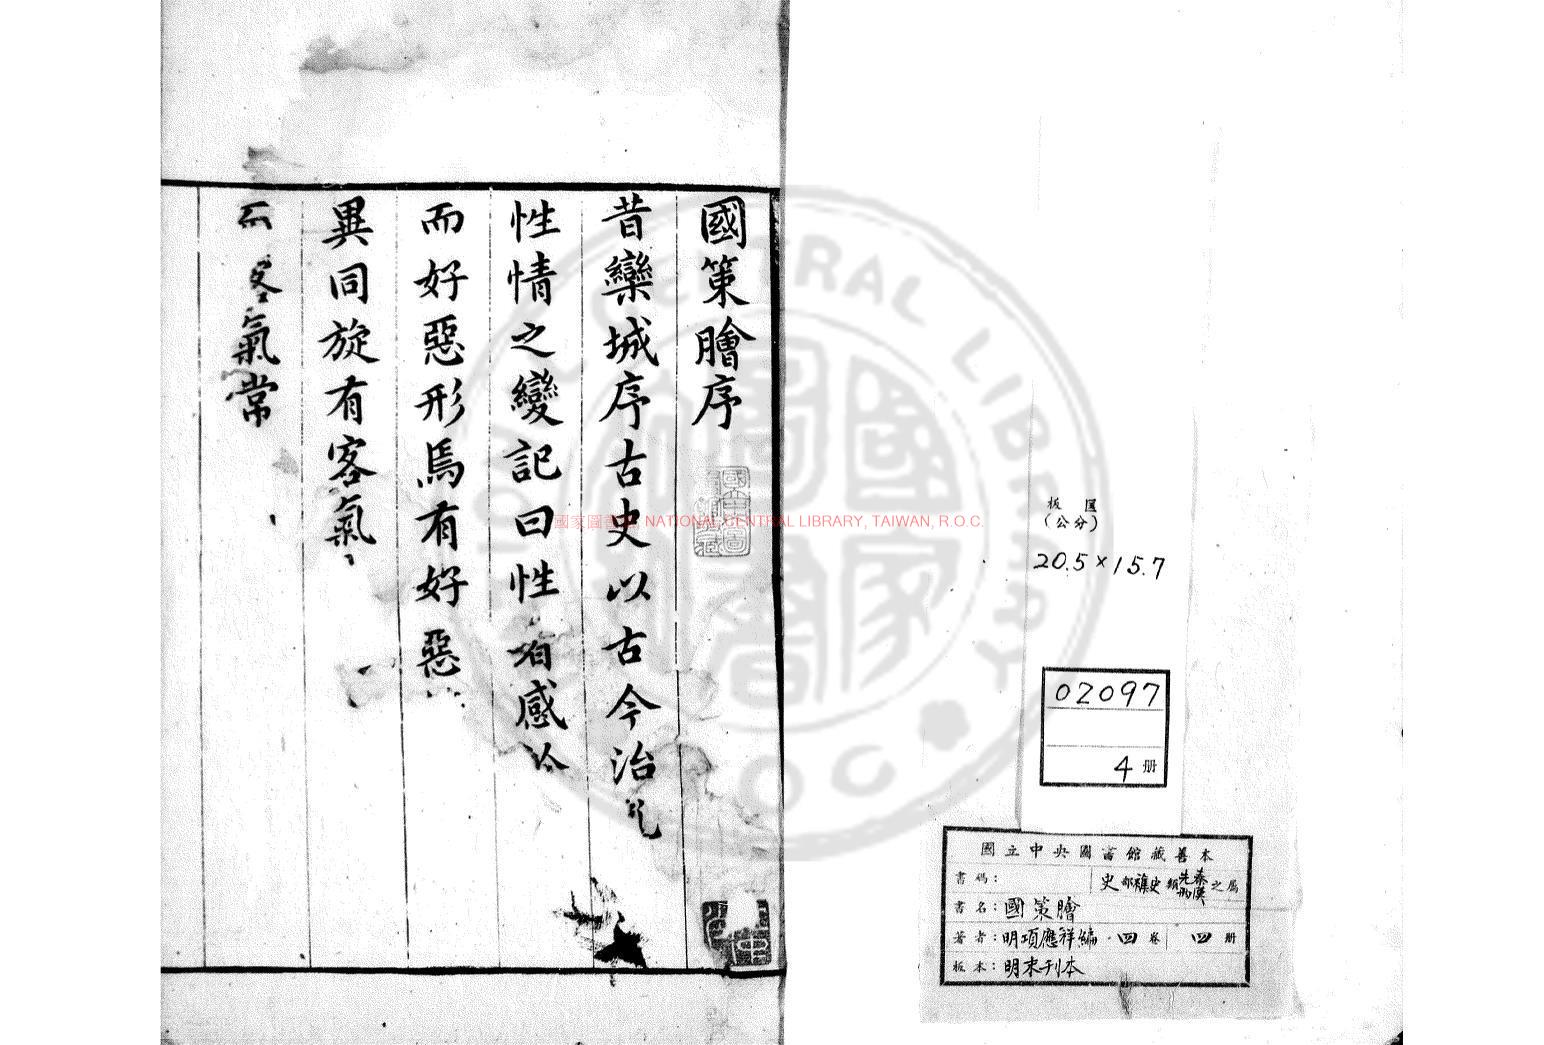 國策膾序
昔欒城序古史以古今治亂
性情之變記曰性有感於
而好惡形焉有好惡
異同旋有客氣
而客氣常
國家圖書館 NATIONAL CENTRAL LIBRARY, TAIWAN, R.O.C.
NATIONAL CENTRAL LIBRARY R.O.C.
國家圖書館
板匡
(公分)
20.5×15.7
02097
4 册
國立中央圖書館藏善本
書碼: 史部雜史類先秦兩漢之屬
書名:國策膾
著者:明項應祥編 四卷 四册
板本:明末刊本